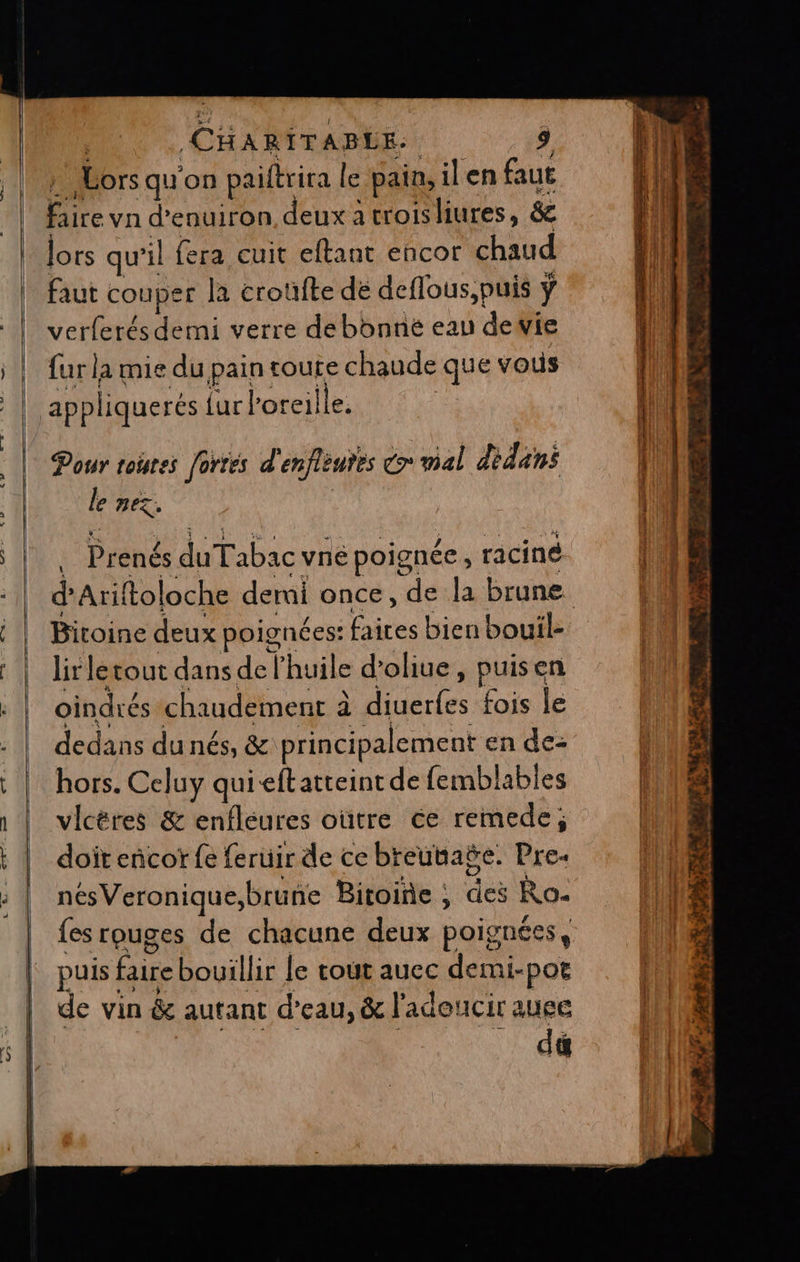 CHARITABLE. 9
Lors qu'on paiſtrira le pain, il en faut
faire vn d'enuiron deux à trois liures, &
lors qu'il ſera cuit eſtant encor chaud
faut couper la crouſte de deſſous, puis y
verſerés demi verre de bonne eau de vie
ſur la mie du pain toute chaude que vous
appliquerés ſur l'oreille.
Pour toutes ſortes d'enfleures & mal dedans
le nez.
Prenés du Tabac vne poignée, racine
d'Ariſtoloche demi once, de la brune
Bitoine deux poignées: faites bien bouil-
lir le tout dans de l'huile d'oliue, puis en
oindrés chaudement à diuerſes fois le
dedans du nés, & principalement en de-
hors. Celuy qui eſt atteint de ſemblables
vlcères & enfleures outre ce remede,
doit encor ſe ſeruir de ce breuuage. Pre-
nés Veronique, brune Bitoine, des Ro-
ſes rouges de chacune deux poignées,
puis faire bouillir le tout auec demi-pot
de vin & autant d'eau, & l'adoucir auec
du